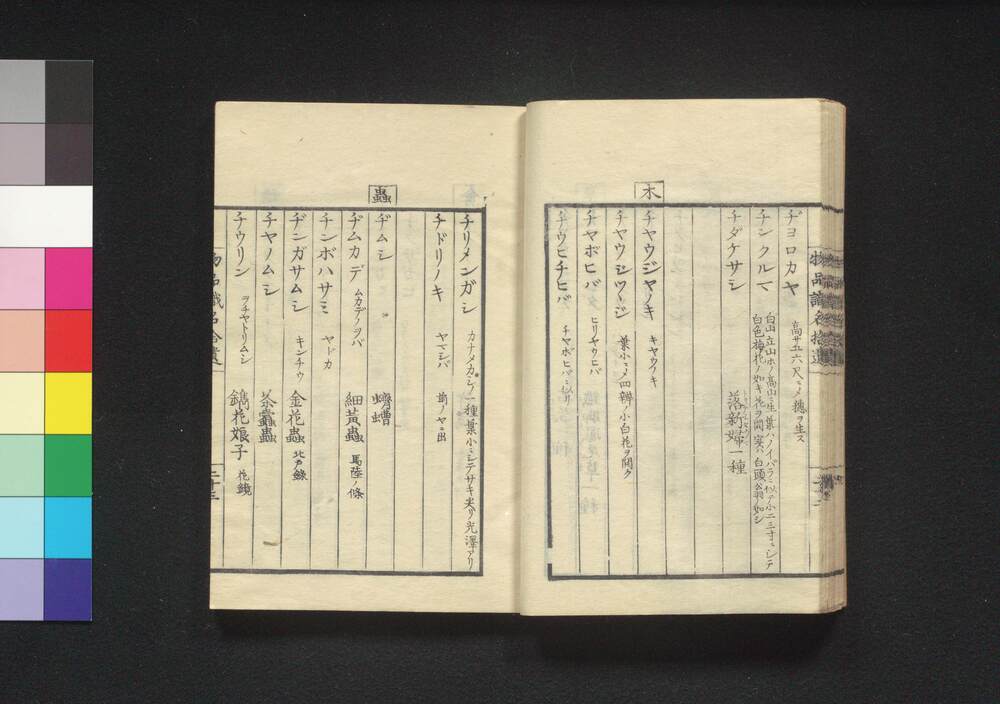 ヂヨロカヤ 高サ五六尺ニメ穗ヲ生ス
チンクルマ 白山立山ホノ高山ニ生葉ハノイバラニ似テ小二三寸ニシテ
白色梅花ノ如キ花ヲ開実ハ白頭翁ノ如シ
チダケサシ 落新婦一種
木
チヤウジヤノキ キヤウノキ
チヤウジツヽジ 葉小ニメ四瓣ノ小白花ヲ開ク
チヤボヒバ ヒリヤウヒバ
チヤウヒチヒバ チヤボヒバニ似リ
チリメンガシ カナメカシノ一種葉小ニシテサキ尖リ光澤アリ
チドリノキ ヤマシバ 前ノヤニ出
蟲
ヂムシ 蠐螬
ヂムカデ ムカデノヲバ 細黃蟲 馬陸ノ條
チンボハサミ ヤドカ
ヂンガサムシ キンチウ 金花蟲 北戸錄
チヤノムシ 茶蠧蟲
チウリン ヲチヤトリムシ 鐫花娘子 花鏡
物品識名拾遺
二十三